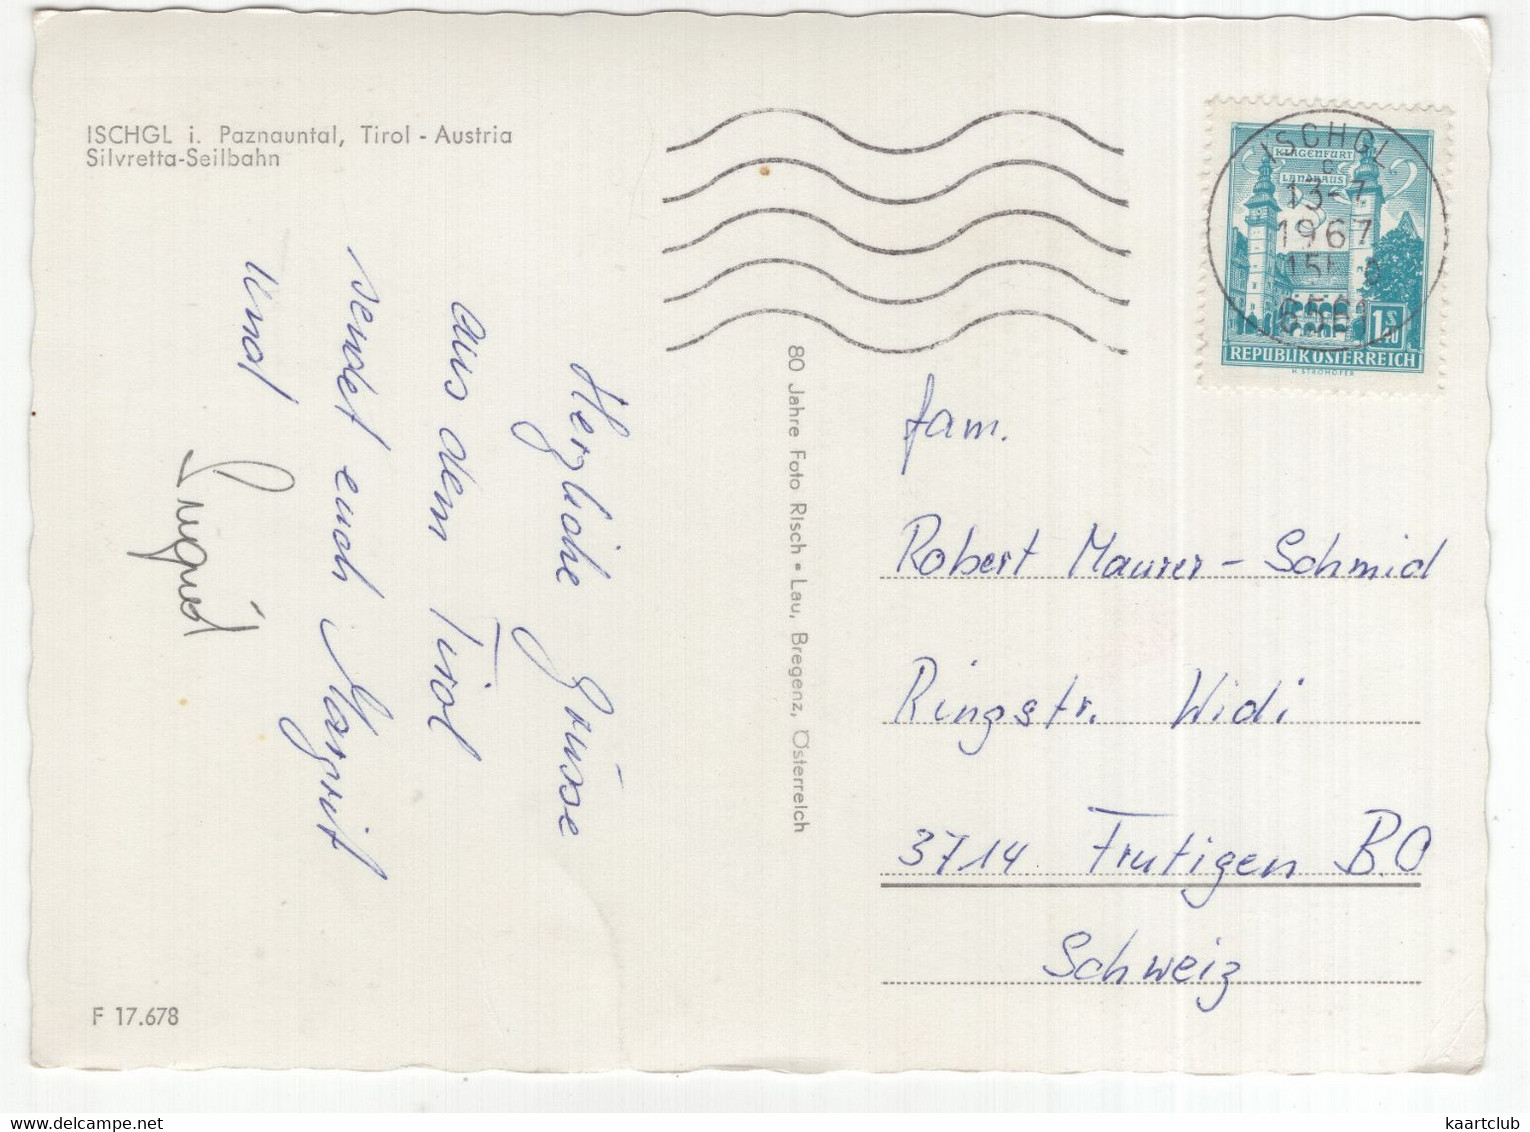 ISCHGL i. Paznauntal, Tirol - Austria
Silvretta-Seilbahn
Herzliche Grüsse
aus dem Tirol
sendet euch Margrit
und
F 17.678
80 Jahre Foto Risch • Lau, Bregenz, Österreich
ISCHGL
13-7
1967
6561
KLAGENFURT
LANDHAUS
REPUBLIK ÖSTERREICH
H. STROHOFER
fam.
Robert Maurer-Schmid
Ringstr. Widi
3714 Frutigen B.O
Schweiz
www.delcampe.net
kaartclub